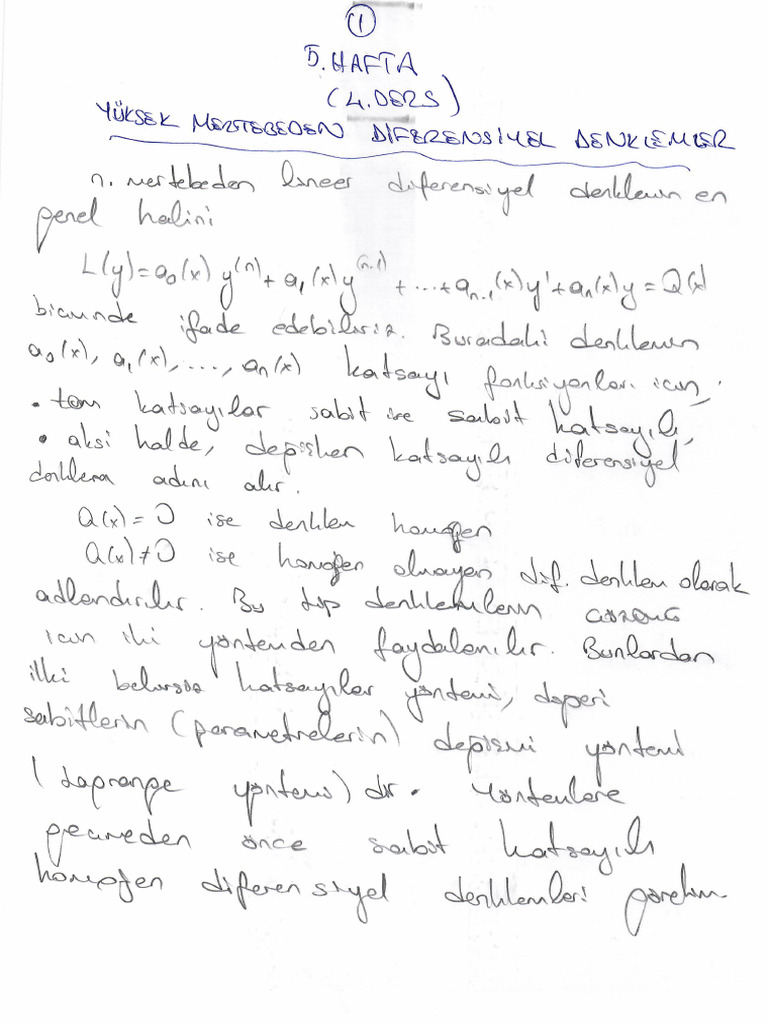 1
5.HAFTA
(4.DERS)
YÜKSEK MERTEBEDEN DİFERENSİYEL DENKLEMLER
n. mertebeden lineer diferensiyel denklemin en
genel halini
L(y)=a₀(x) y⁽ⁿ⁾+a₁(x)y⁽ⁿ⁻¹⁾+...+aₙ₋₁(x)y'+aₙ(x)y=Q(x)
biçiminde ifade edebiliriz. Buradaki denklemin
a₀(x), a₁(x), ..., aₙ(x) katsayı fonksiyonları için;
• tüm katsayılar sabit ise sabit katsayılı,
• aksi halde, değişken katsayılı diferensiyel
denklem adını alır.
Q(x)=0 ise denklem homojen
Q(x)≠0 ise homojen olmayan dif. denklem olarak
adlandırılır. Bu tip denklemlerin çözümü
için iki yöntemden faydalanılır. Bunlardan
ilki belirsiz katsayılar yöntemi, diğeri
sabitlerin (parametrelerin) değişimi yöntemi
(Lagrange yöntemi) dir. Yöntemlere
geçmeden önce sabit katsayılı
homojen diferensiyel denklemleri görelim